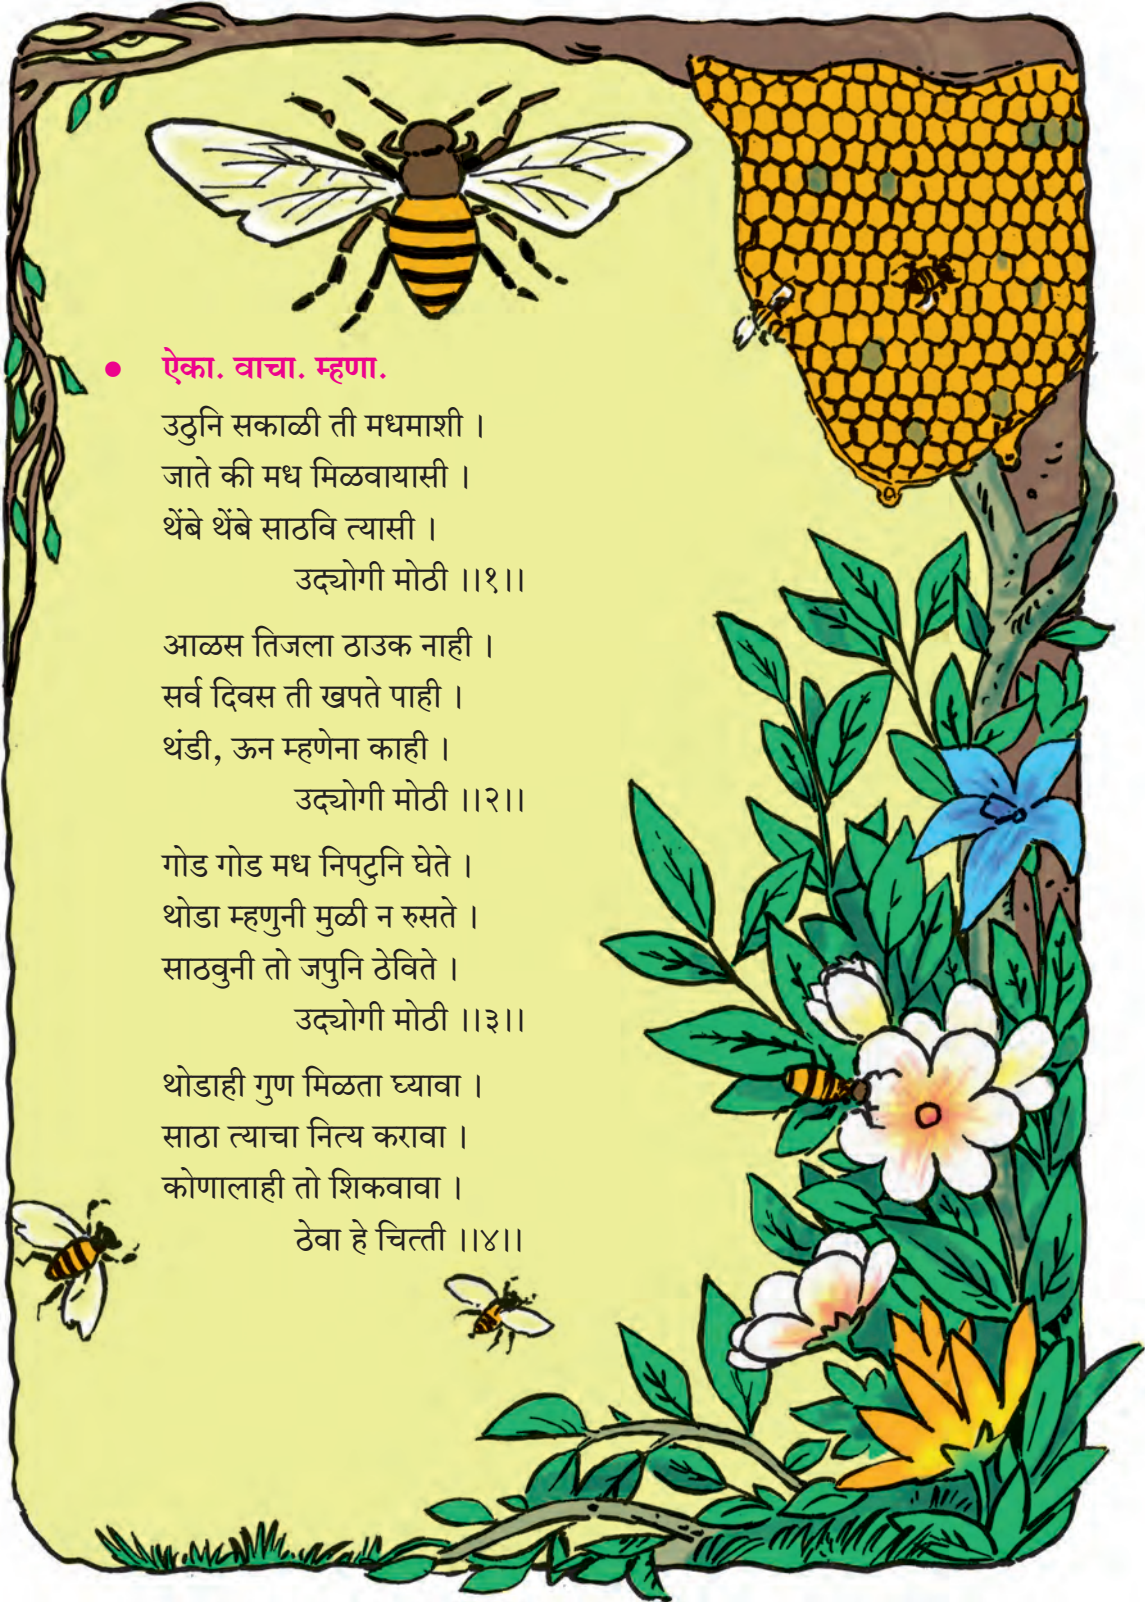 • ऐका. वाचा. म्हणा.
उठुनि सकाळी ती मधमाशी ।
जाते की मध मिळवायासी ।
थेंबे थेंबे साठवि त्यासी ।
उद्योगी मोठी ।।१।।
आळस तिजला ठाउक नाही ।
सर्व दिवस ती खपते पाही ।
थंडी, ऊन म्हणेना काही ।
उद्योगी मोठी ।।२।।
गोड गोड मध निपटुनि घेते ।
थोडा म्हणुनी मुळी न रुसते ।
साठवुनी तो जपुनि ठेविते ।
उद्योगी मोठी ।।३।।
थोडाही गुण मिळता घ्यावा ।
साठा त्याचा नित्य करावा ।
कोणालाही तो शिकवावा ।
ठेवा हे चित्ती ।।४।।